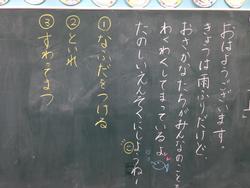 おはようございます。
きょうは雨ふりだけど、
おさかなたちがみんなのこと
わくわくしてまっているよ
たのしいえんそくにしようねー
①なふだをつける
②といれ
③すわってまつ